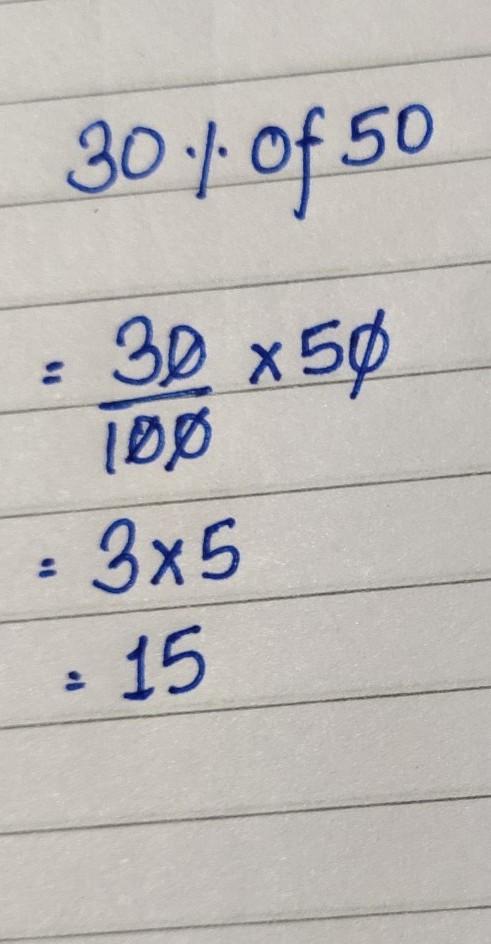 30% of 50
= 30/100 × 50
= 3×5
= 15